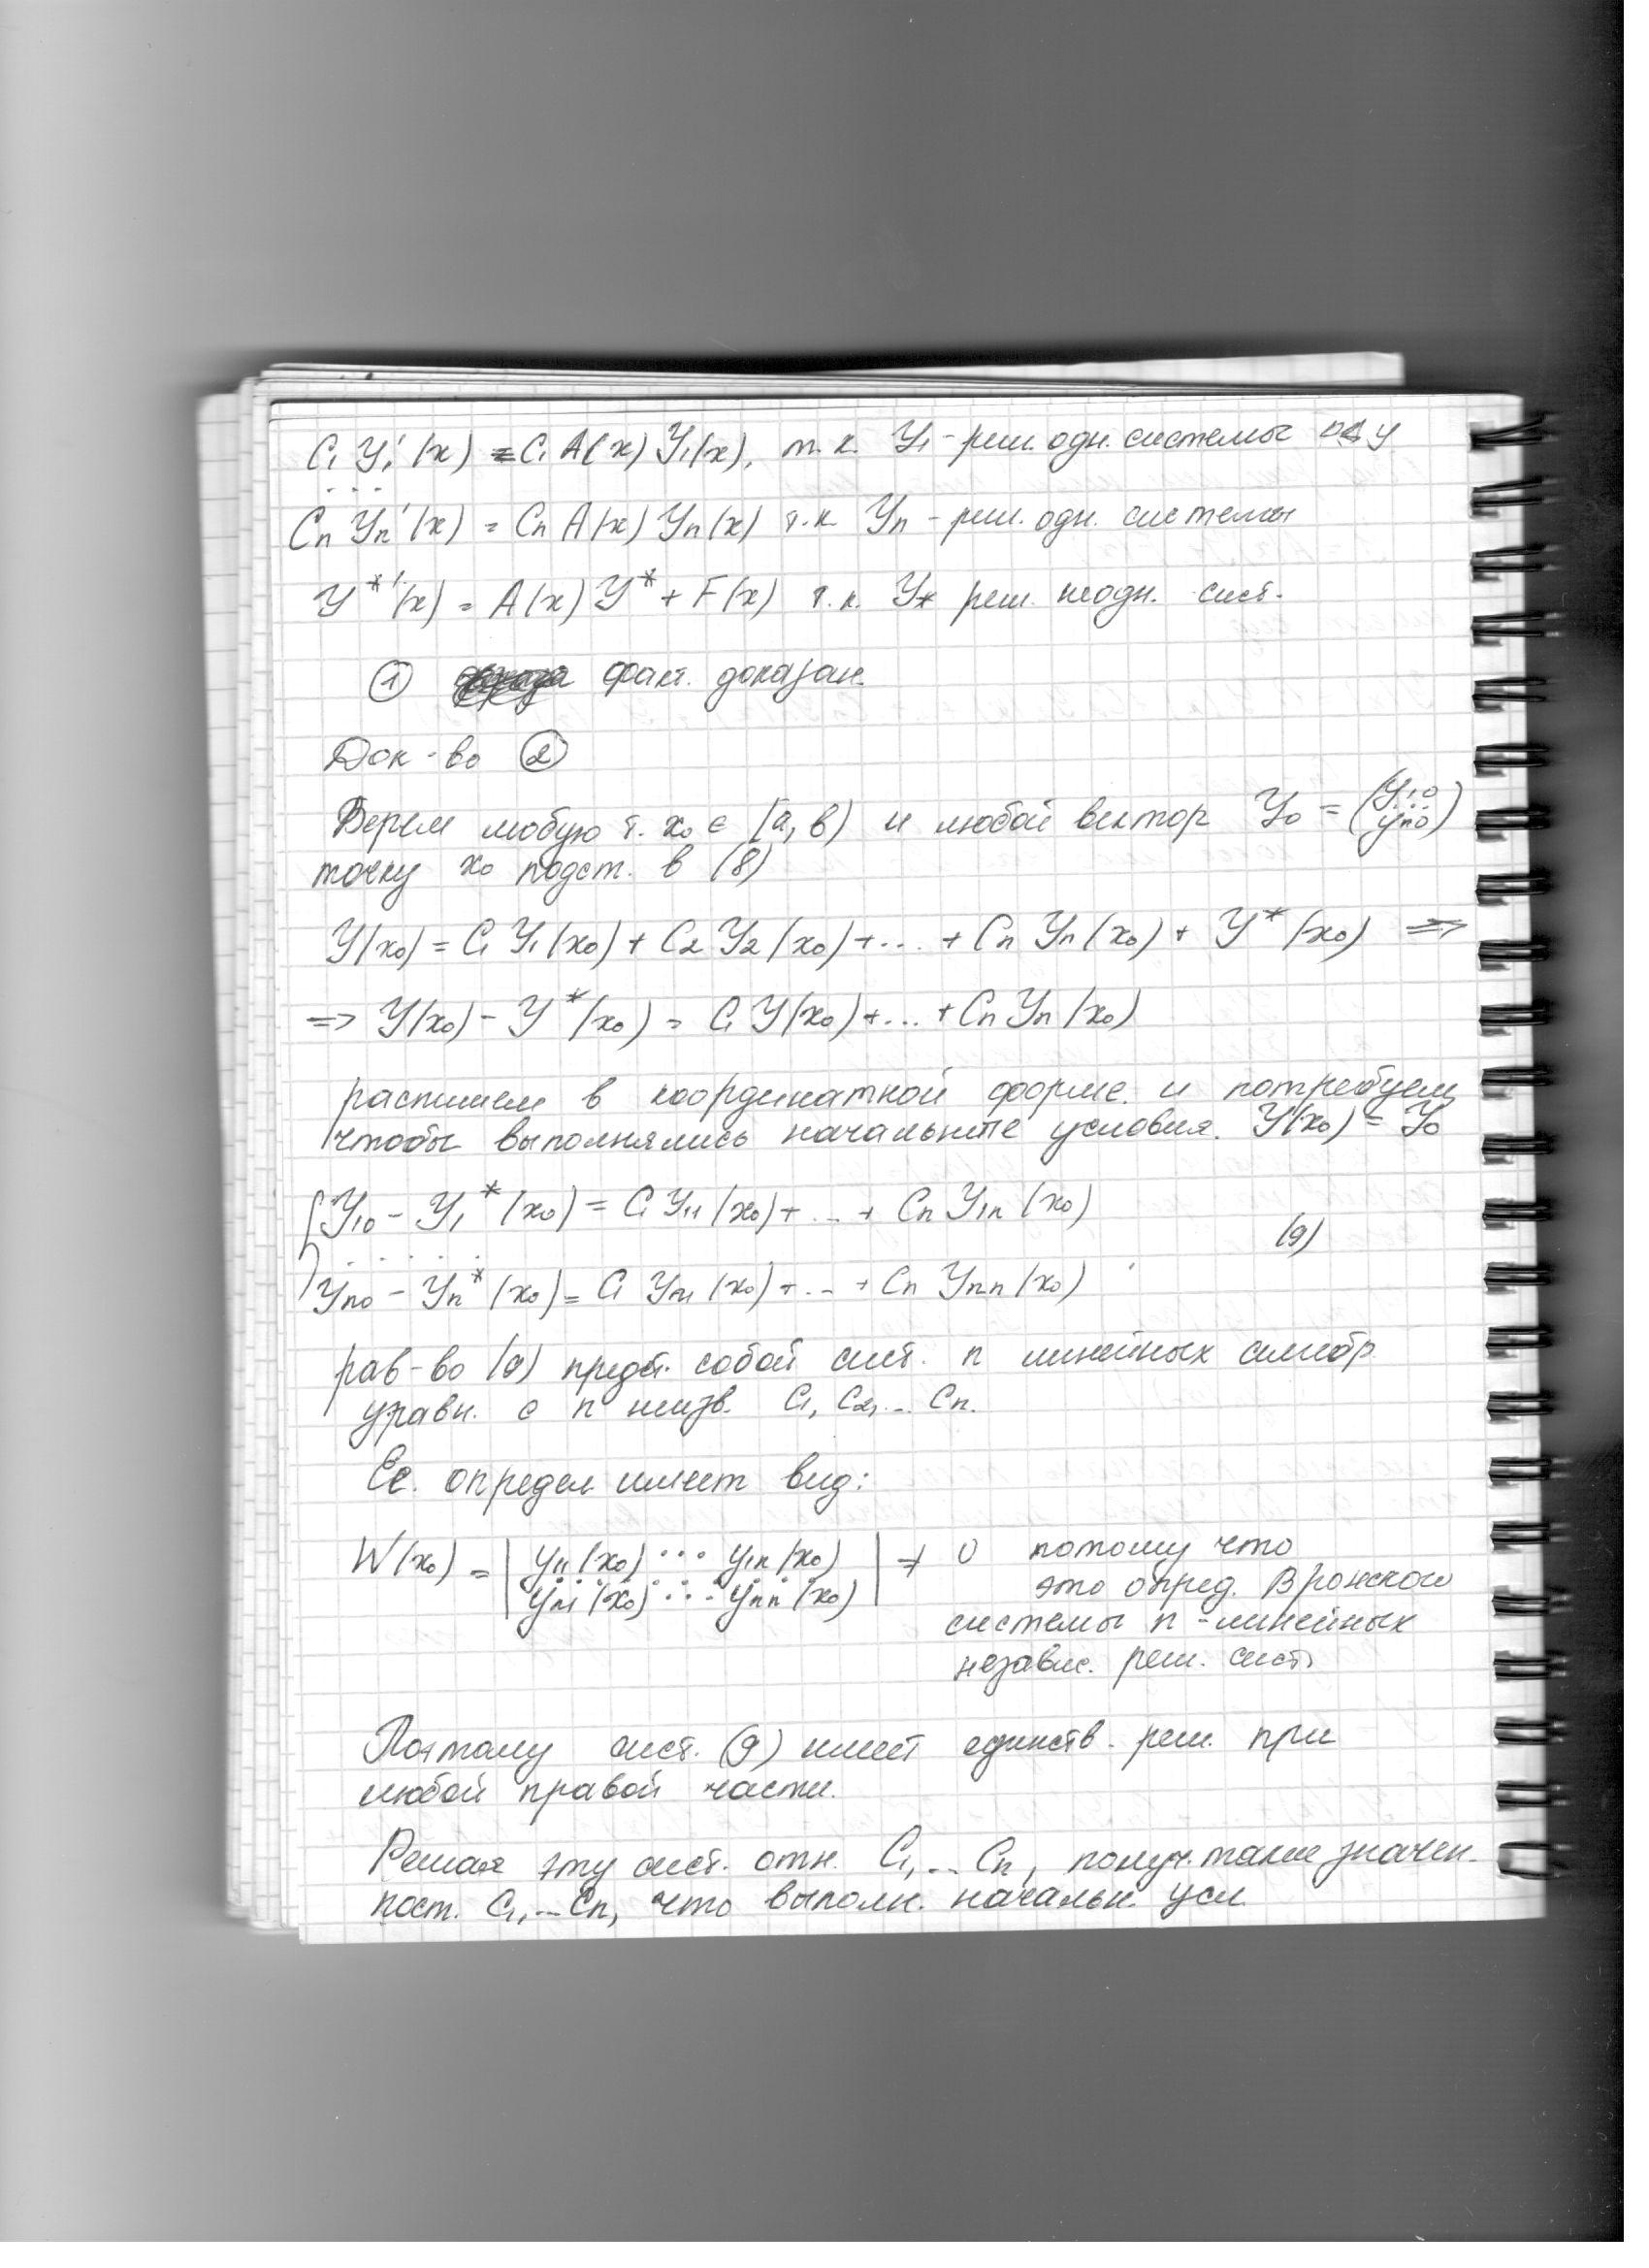 C₁ Y₁'(x) = C₁ A(x) Y₁(x), т.к. Y₁ - реш. одн. системы ОДУ
. . .
Cn Yn'(x) = Cn A(x) Yn(x) т.к. Yn - реш. одн. системы
Y*'(x) = A(x) Y* + F(x) т.к. Y* реш. неодн. сист.
① факт. доказан.
Док-во ②
Берем любую т. x₀ ∈ [a, b) и любой вектор Y₀ = (y₁₀ ... yn₀)
точку x₀ подст. в (8)
Y(x₀) = C₁ Y₁(x₀) + C₂ Y₂(x₀) + ... + Cn Yn(x₀) + Y*(x₀) =>
=> Y(x₀) - Y*(x₀) = C₁ Y(x₀) + ... + Cn Yn(x₀)
распишем в координатной форме и потребуем
чтобы выполнялись начальные условия. Y(x₀) = Y₀
{ Y₁₀ - Y₁*(x₀) = C₁ Y₁₁(x₀) + ... + Cn Y₁n(x₀)
. . . . . (9)
Yn₀ - Yn*(x₀) = C₁ Yn₁(x₀) + ... + Cn Ynn(x₀)
рав-во (9) предст. собой сист. n линейных алгебр.
уравн. с n неизв. C₁, C₂, ... Cn.
Ее определ имеет вид:
W(x₀) = | y₁₁(x₀) ... y₁n(x₀) | ≠ 0 потому что
yn₁(x₀) ... ynn(x₀) это опред. Вронского
системы n - линейных
независ. реш. сист.
Поэтому сист. (9) имеет единств. реш. при
любой правой части.
Решая эту сист. отн. C₁, ... Cn, получ. такие значен.
пост. C₁, ... Cn, что выполн. начальн. усл